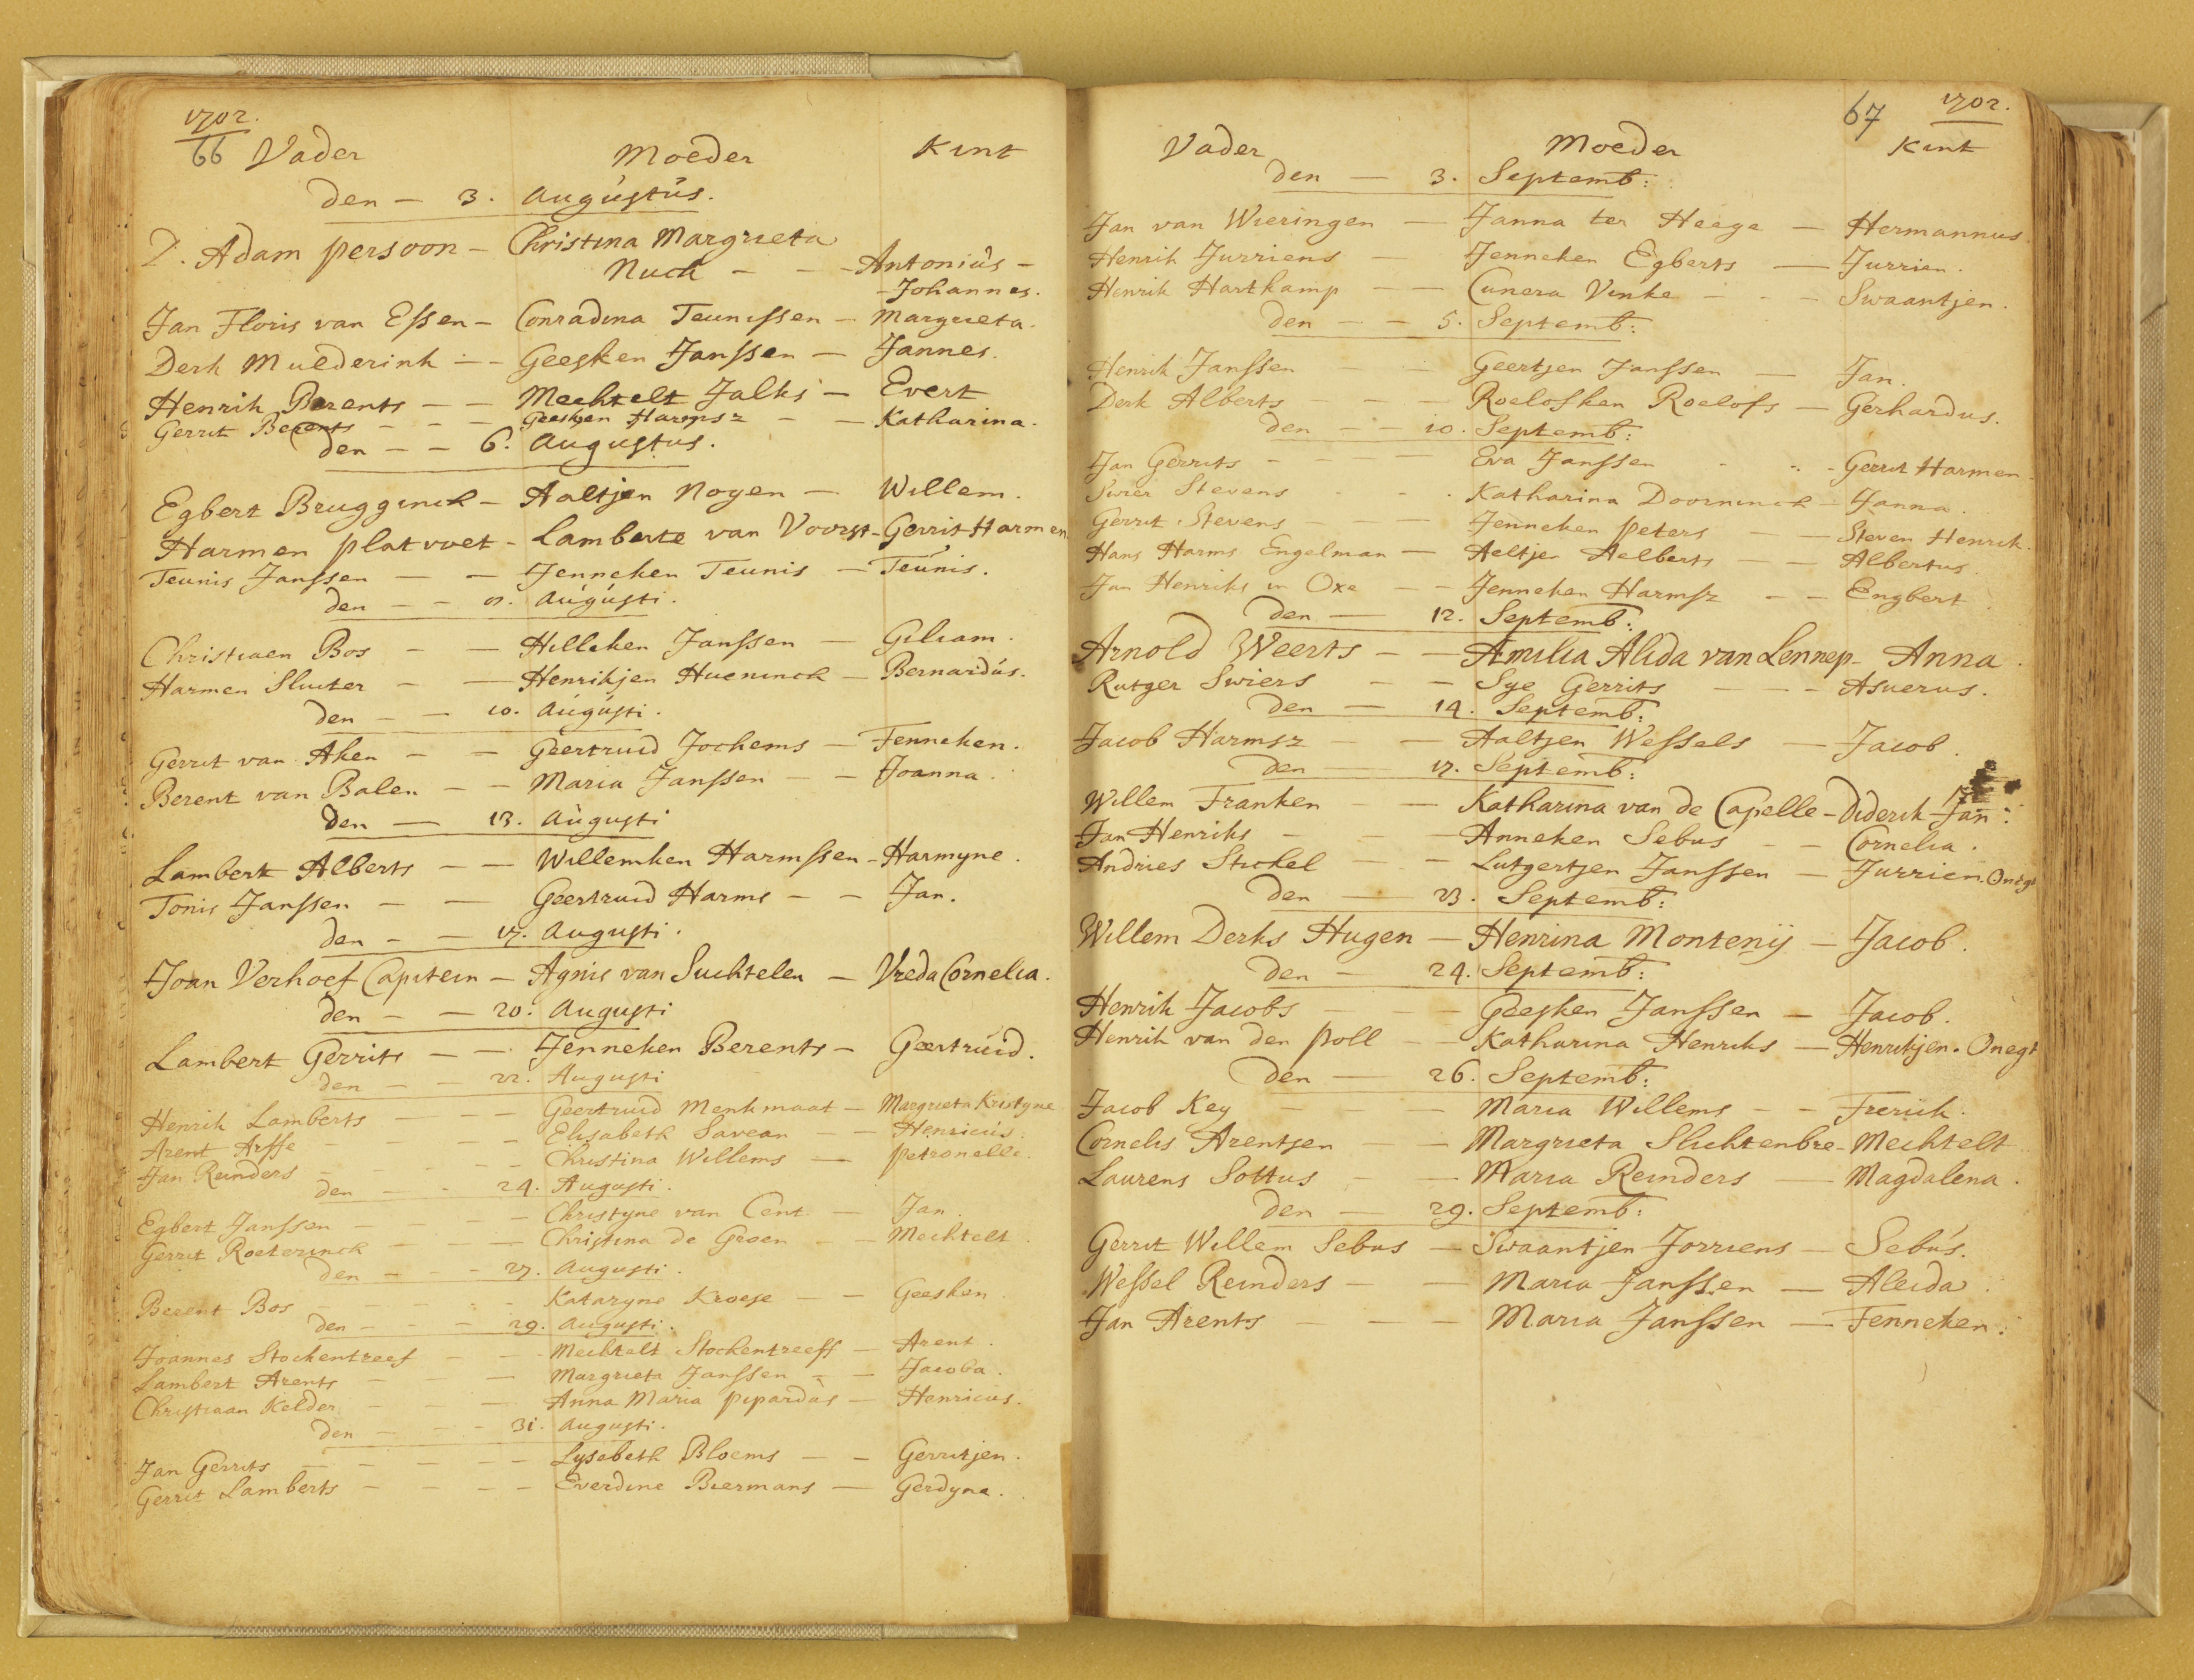 1702.
66 Vader Moeder Kint
den — 3. Augústús.
D. Adam persoon — Christina Margrieta
Nuck — — Antoniús —
— Johannes.
Jan Floris van Essen — Conradina Teunissen — Margrieta.
Derk Mulderink — — Geesken Janssen — Jannes.
Henrik Berents — — Mechtelt Jalks — Evert
Gerrit Berents — — — Geesken Harmsz — — Katharina.
den — — 6. Augustus.
Egbert Brugginck — Aaltjen Noyen — Willem.
Harmen platvoet — Lamberte van Voorst — Gerrit Harmen
Teunis Janssen — — Jenneken Teunis — Teúnis.
den — — 7. Aúgústi.
Christiaen Bos — — Hilleken Janssen — Giliam.
Harmen Sluiter — — Henrikjen Hueninck — Bernardús.
den — — 10. Aúgústi.
Gerrit van Aken — — Geertruid Jochems — Fenneken.
Berent van Balen — — Maria Janssen — — Joanna.
den — 13. Aúgusti
Lambert Alberts — — Willemken Harmssen — Harmyne.
Tonis Janssen — — Geertruid Harms — — Jan.
den — — 17. Augusti.
Joan Verhoef Capitein — Agnis van Suchtelen — Vreda Cornelia.
den — — 20. Augusti
Lambert Gerrits — — Jenneken Berents — Geertrúid.
den — — 22. Augusti
Henrik Lamberts — — Geertruid Menkmaat — Margrieta Kristyne
Arent Arsse — — — — Elisabeth Savean — — Henricús.
Jan Reinders — — — — Christina Willems — Petronelle.
den — — 24. Augusti.
Egbert Janssen — — — — Christyne van Cent — Jan.
Gerrit Roeterinck — — — Christina de Groen — — Mechtelt.
den — — 27. Augusti.
Berent Bos — — — — Kataryne Kroese — — Geesken.
den — — — 29. Augusti.
Joannes Stockentreef — — — Mechtelt Stockentreeff — Arent.
Lambert Arents — — — Margrieta Janssen — — Jacoba.
Christiaan Kelder — — — Anna Maria pipardùs — Henricus.
den — — — 31. Augusti.
Jan Gerrits — — — — — Lysebeth Bloems — — Gerritjen.
Gerrit Lamberts — — — — Everdine Biermans — Gerdyna.
67 1702.
Vader Moeder Kint
den — 3. Septemb:
Jan van Wieringen — Janna ter Heege — Hermannus.
Henrik Jurriens — Jenneken Egberts — Jurrien.
Henrik Hartkamp — — Cunera Vinke — — — Swaantjen.
den — — 5. Septemb:
Henrik Janssen — — Geertjen Janssen — Jan.
Derk Alberts — — — Roelofken Roelofs — Gerhardus.
den — — 10. Septemb:
Jan Gerrits — — — — Eva Janssen — — — Gerrit Harmen.
Swier Stevens — — — Katharina Doorninck — Janna.
Gerrit Stevens — — Jenneken Peters — — Steven Henrik.
Hans Harms Engelman — Aeltjen Aelberts — — Albertus.
Jan Henriks in Oxe — — Jenneken Harmsz — — Engbert.
den — 12. Septemb:
Arnold Weerts — — Amilia Alida van Lennep — Anna.
Rutger Swiers — — Sye Gerrits — — — Asuerus.
den — 14. Septemb:
Jacob Harmsz — — Aaltjen Wessels — Jacob.
den — 17. Septemb:
Willem Franken — — Katharina van de Capelle — Diderik Jan:
Jan Henriks — — — Anneken Sebus — — Cornelia.
Andries Stickel — Lutgertjen Janssen — Jurrien. Onegt
den — 23. Septemb:
Willem Derks Hugen — Henrina Montenij — Jacob.
den — 24. Septemb:
Henrik Jacobs — — — Geesken Janssen — Jacob.
Henrik van den Poll — — Katharina Henriks — Henrikjen. Onegt
den — 26. Septemb:
Jacob Key — — Maria Willems — — Frerick.
Cornelis Arentsen — — Margrieta Slichtenbre — Mechtelt
Laurens Sottus — — Maria Reinders — Magdalena.
den — 29. Septemb:
Gerrit Willem Sebus — Swaantjen Jorriens — Sebús.
Wessel Reinders — — Maria Janssen — Aleida.
Jan Arents — — — Maria Janssen — Fenneken.